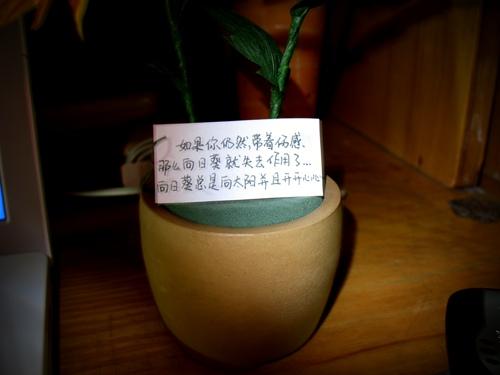 如果你仍然带着伤感、
那么向日葵就失去作用了...
向日葵总是向太阳并且开开心心